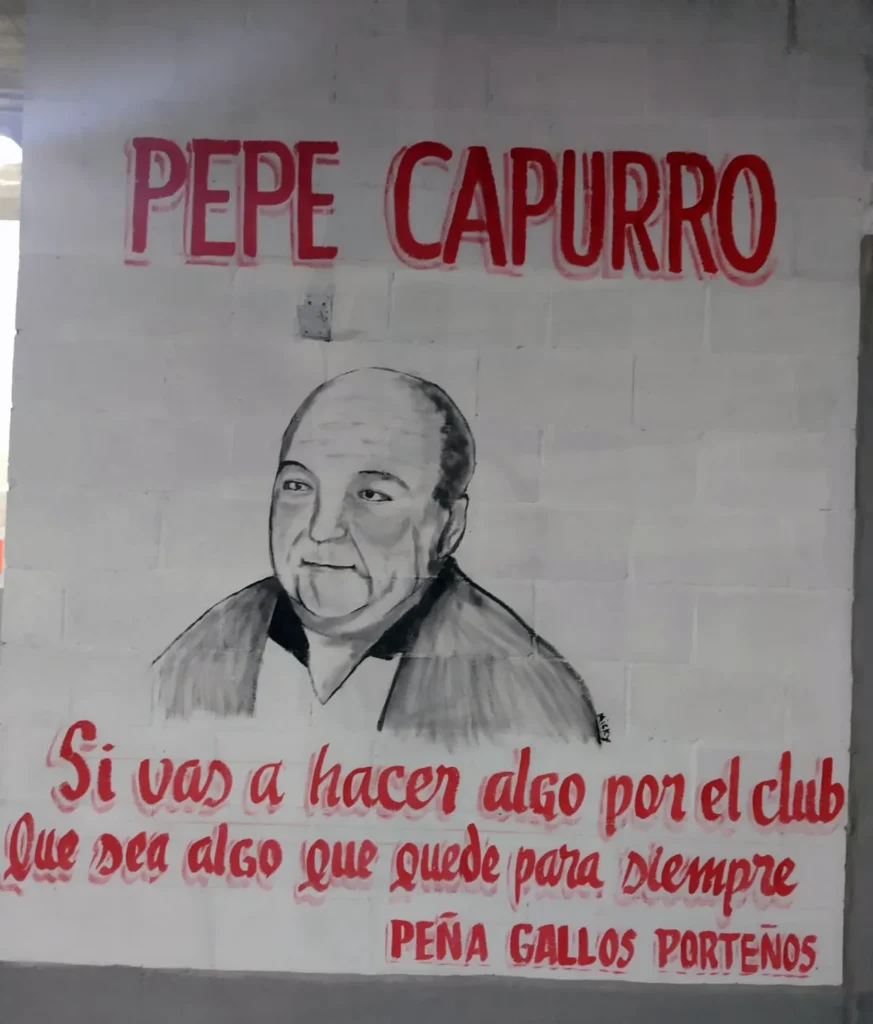 PEPE CAPURRO
MICKY
Si vas a hacer algo por el club
Que sea algo que quede para siempre
PEÑA GALLOS PORTEÑOS